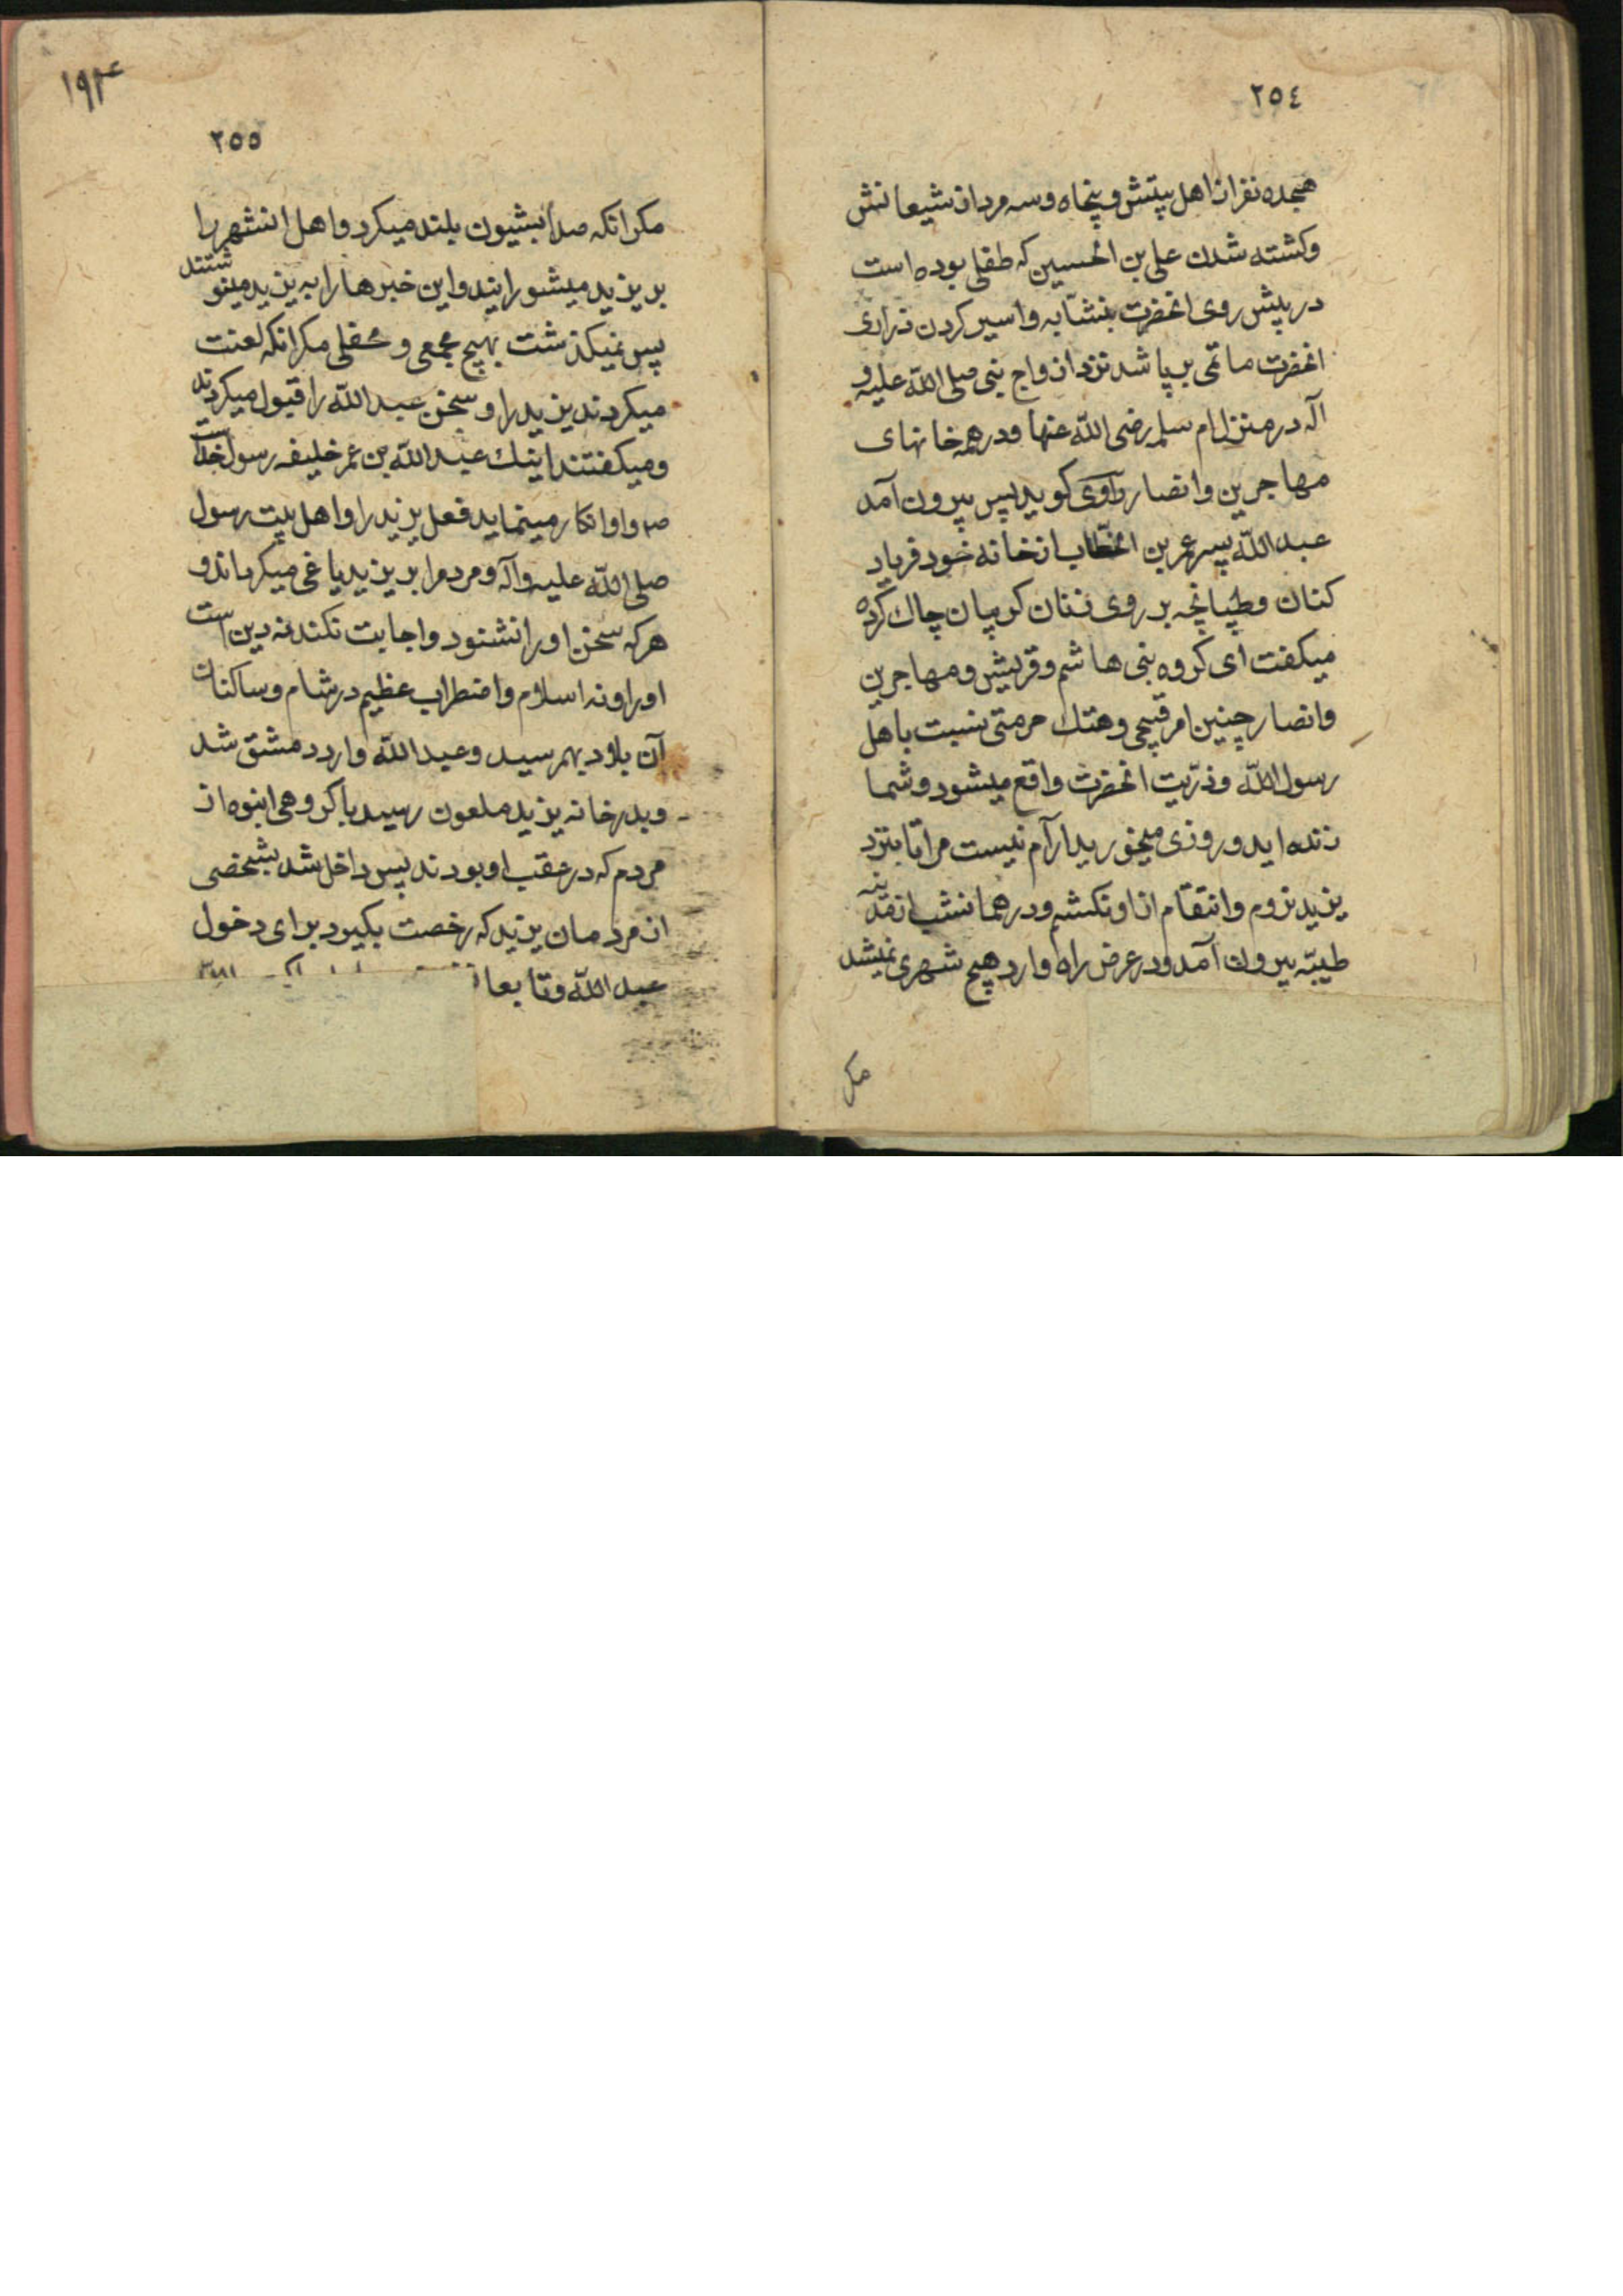 ٢٥٤
هجده نفر از اهل بیتش و پنجاه و سه مرد از شیعانش
و کشته شدن علی بن الحسین که طفلی بوده است
در پیش روی انحضرت بنشّابه و اسیر کردن ذراری
انحضرت ماتمی بر پا شد نزد ازواج بنی صلی اللّه علیه و
آله در منزل ام سلمه رضی اللّه عنها و در همه خانهای
مهاجرین و انصار راوی کوید پس بیرون آمد
عبد اللّه پسر عمر بن الخطّاب از خانه خود فریاد
کنان و طپانچه بر روی زنان کریبان چاك کرده
میکفت ای کروه بنی هاشم و قریش و مهاجرین
و انصار چنین امر قبیحی و هتك حرمتی نسبت باهل
رسول اللّه و ذرّیت انحضرت واقع میشود و شما
زنده اید و روزی میخورید آرام نیست مرا تا بنزد
یزید نروم و انتقام از او نکشم و در همانشب از مدینه
طیبّه بیرون آمد و در عرض راه وارد هیچ شهری نمیشد
مکر
١٩٣
٢٥٥
مکر انکه صدا بشیون بلند میکرد و اهل انشهر را
بر یزید میشورانید و این خبرها را به یزید مینوشتند
پس نمیکذشت بهیچ مجمعی و محفلی مکر انکه لعنت
میکردند یزید را و سخن عبد اللّه را قبول میکردند
و میکفتند اینك عبد اللّه بن عمر خلیفه رسول خداست
ص و او انکار مینماید فعل یزید را و اهل بیت رسول
صلی اللّه علیه و آله و مردم را بر یزید یاغی میکرداند و
هر که سخن او را نشنود و اجابت نکند نه دین است
او را و نه اسلام و اضطراب عظیم در شام و ساکنان
آن بلاد بهمرسید و عبد اللّه وارد دمشق شد
و بدر خانه یزید ملعون رسید با کروهی انبوه از
مردم که در عقب او بودند پس داخل شد شخصی
از مردمان یزید که رخصت بکیرد برای دخول
عبد اللّه و تابعا